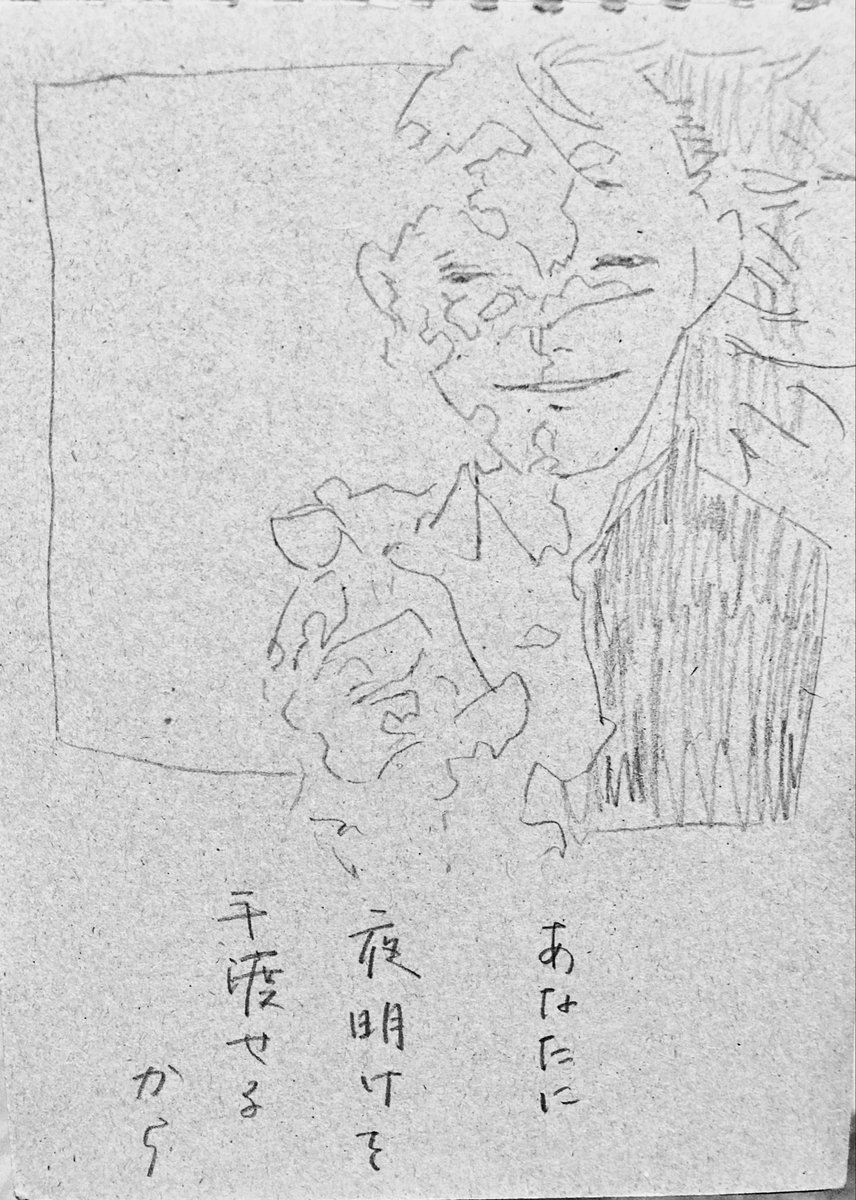 あなたに
夜明けを
手渡せる
から